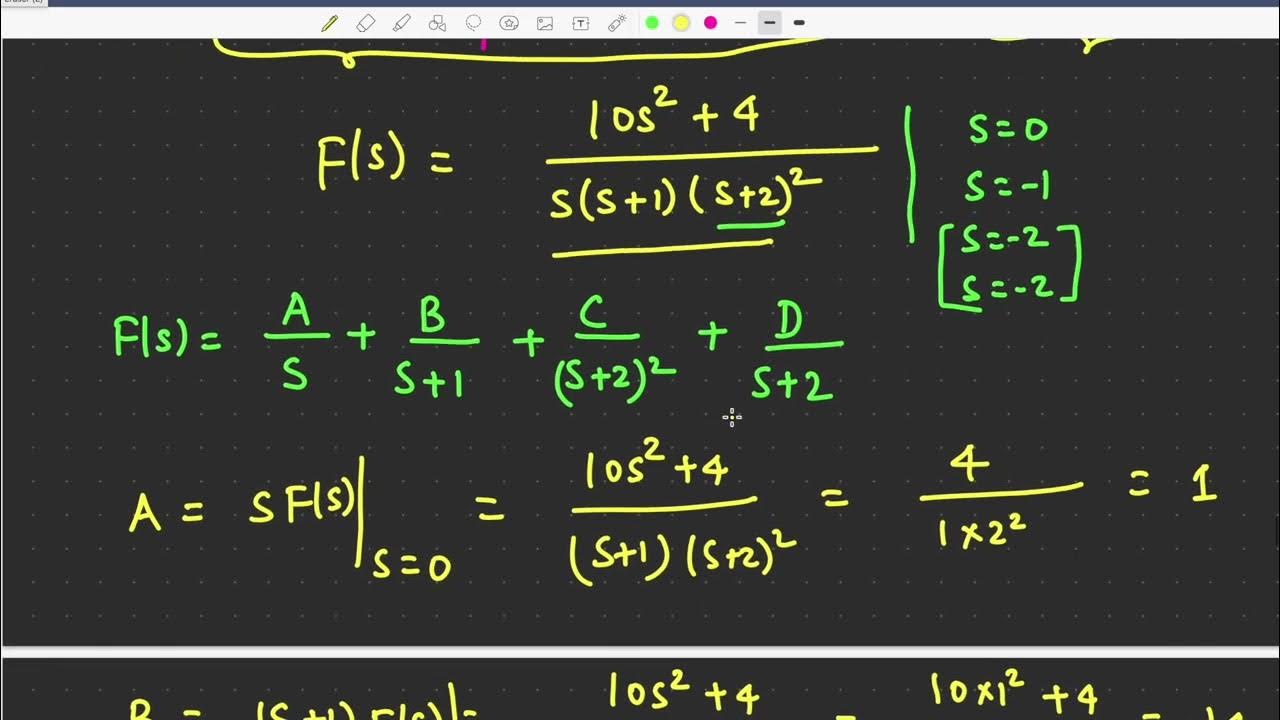 F(s) = (10s² + 4) / (s(s+1)(s+2)²)
s=0
s=-1
[s=-2
s=-2]
F(s) = A/s + B/(s+1) + C/(s+2)² + D/(s+2)
A = sF(s)|s=0 = (10s²+4) / ((s+1)(s+2)²) = 4 / (1×2²) = 1
10s² + 4 = 10×1² + 4 =